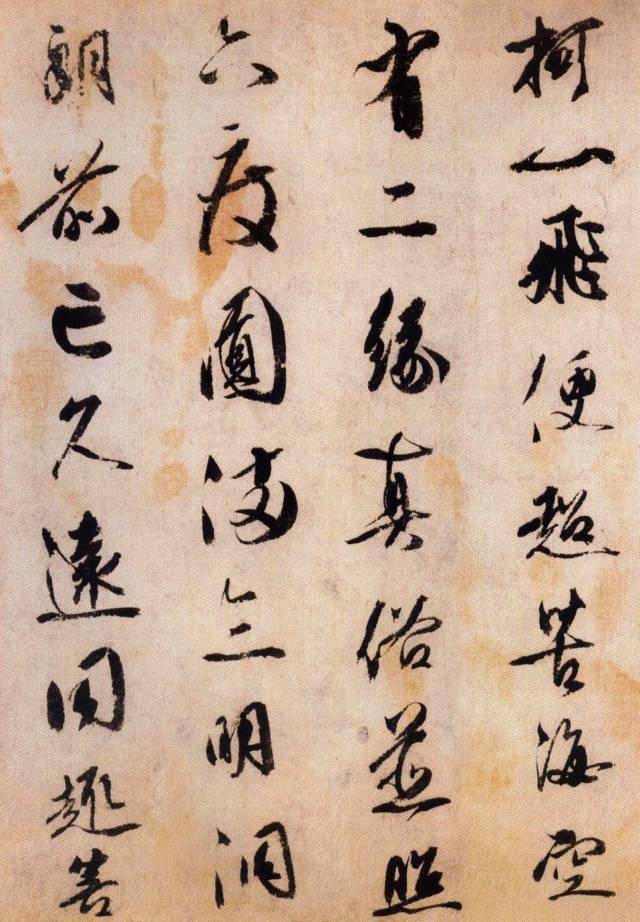 柯飛便超苦海空
有二緣真俗並照
六度圓滿三明洞
朗前亡久遠同趣菩